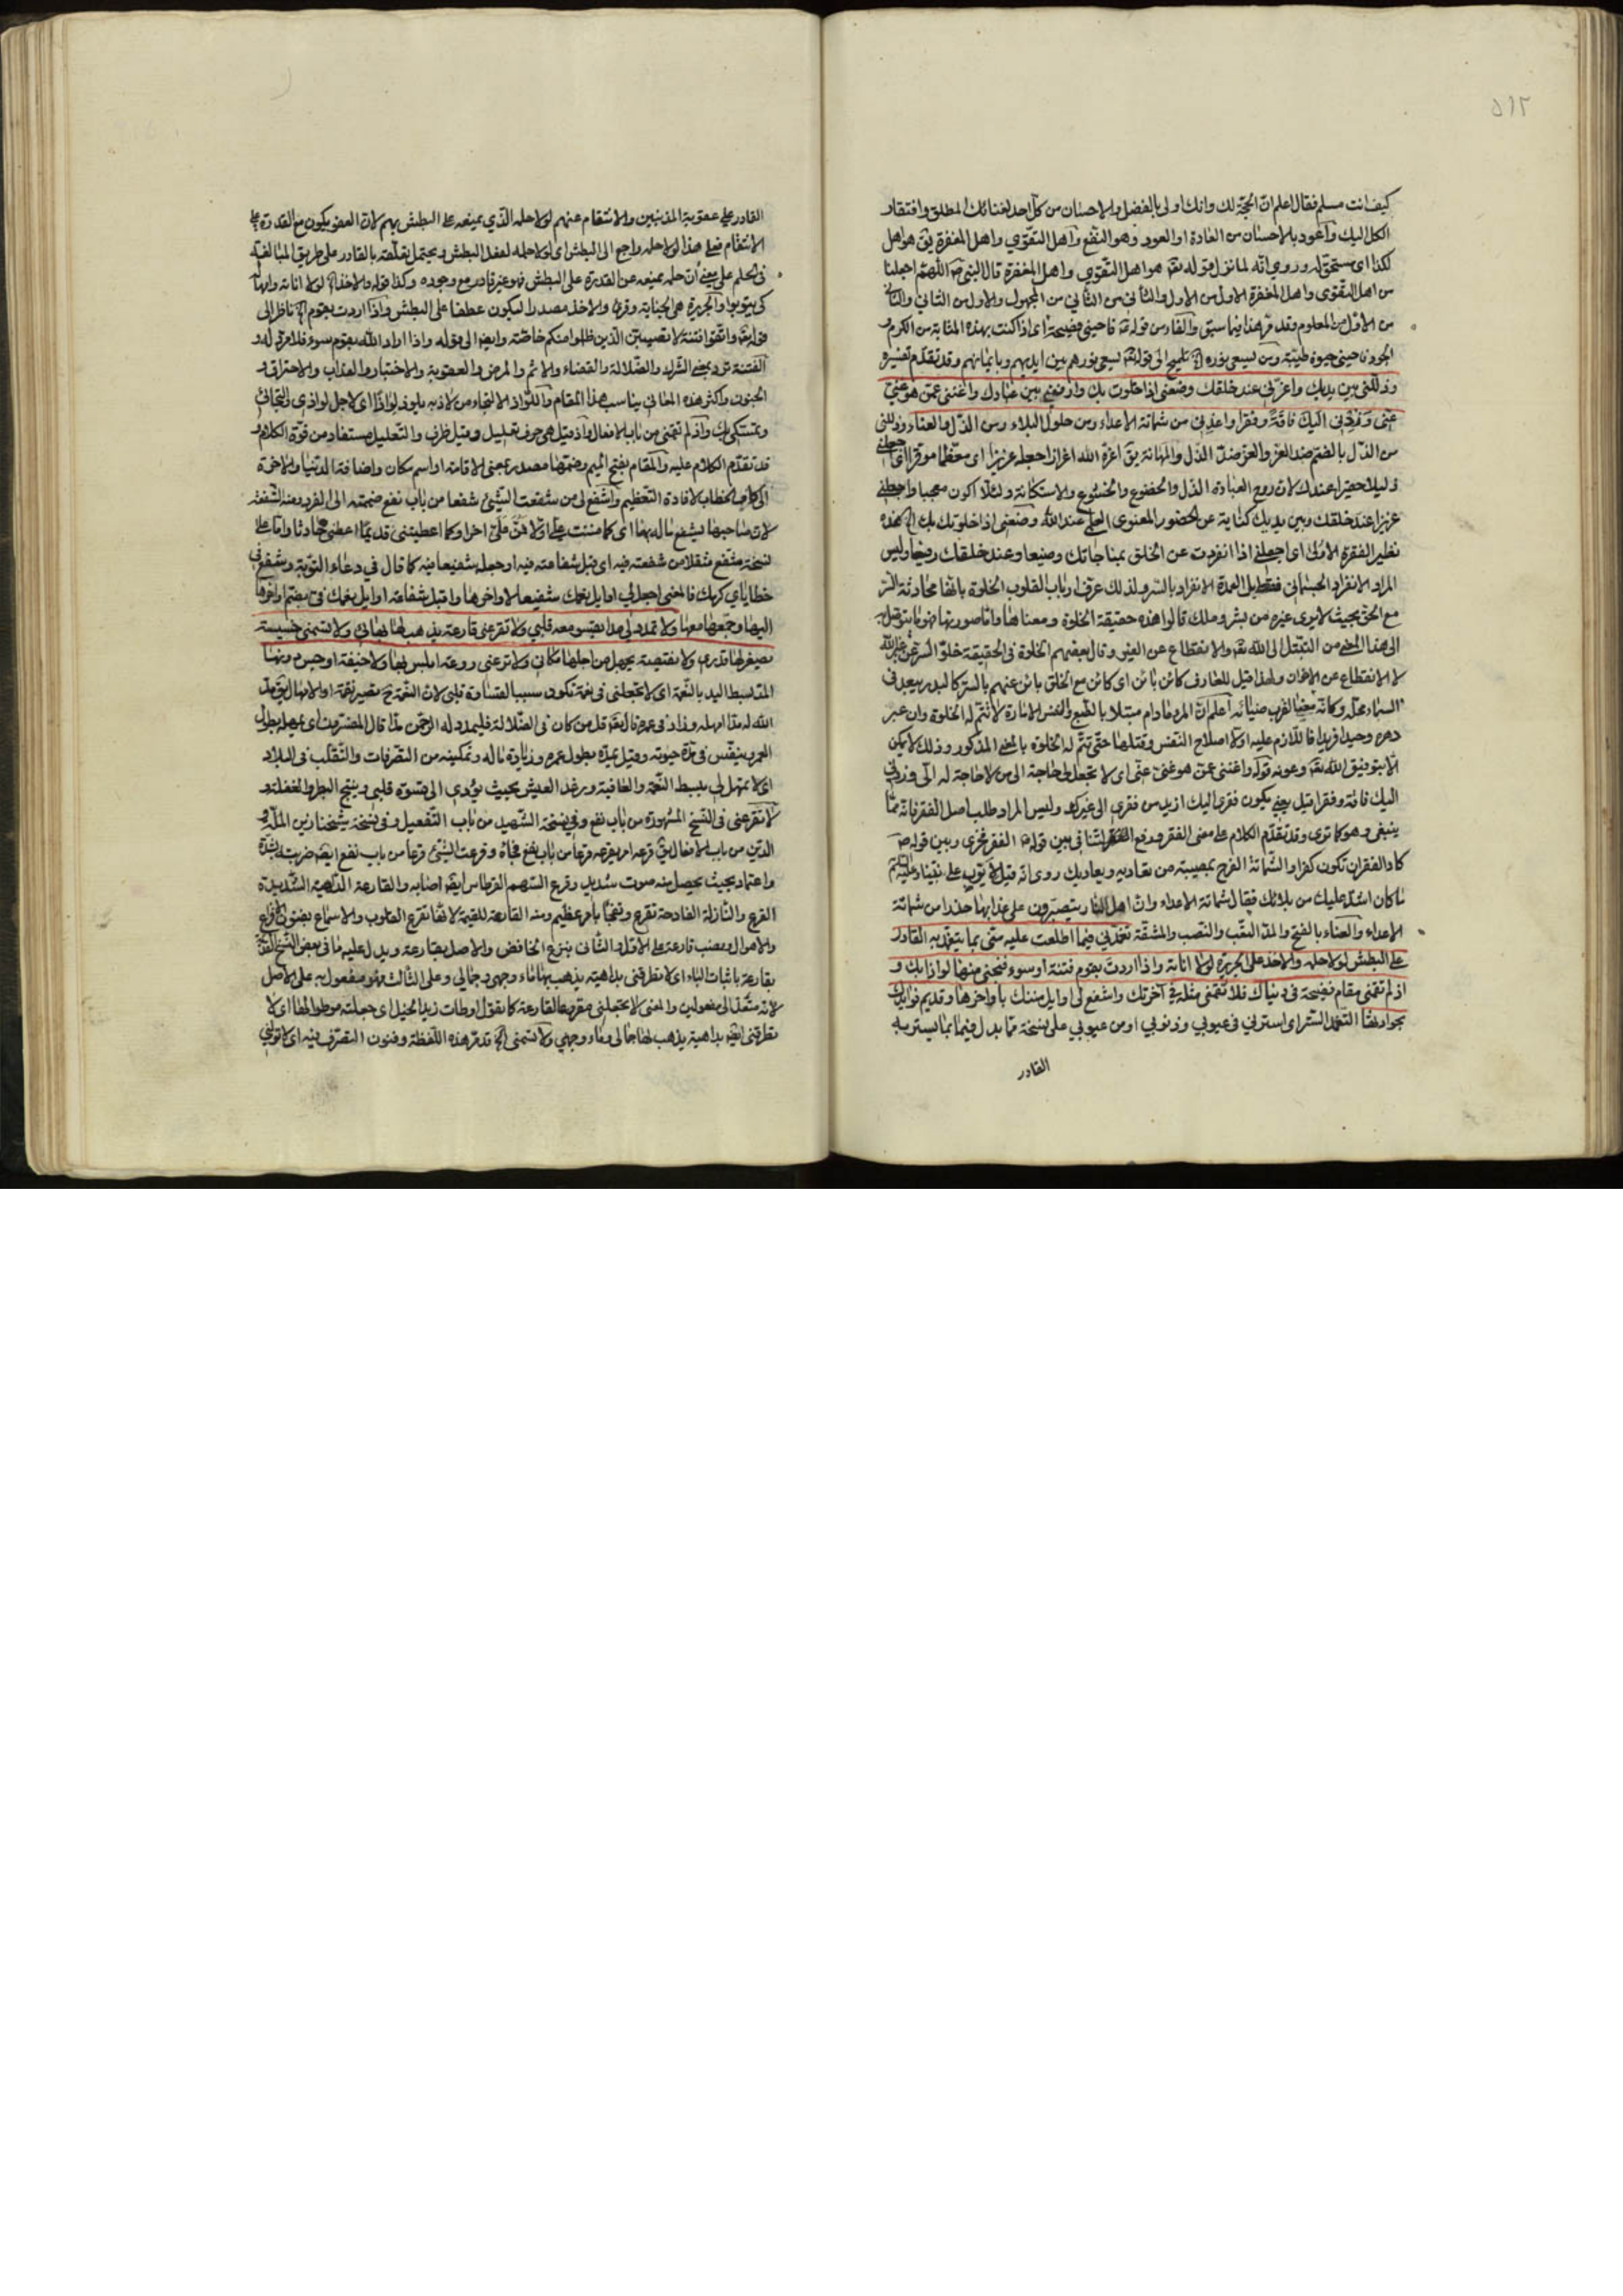 ٥١٢
كيف انت مسلم فقال اعلم ان الحجّة لك وانك اولى بالفضل والاحسان من كلّ احد لغنائك المطلق وافتقار
الكل اليك وأعود بالاحسان من العادة او العود وهو النفع وأهل التقوي واهل المغفرة يق هو اهل
لكذا اى مستحق له وروي انّه لما نزل قوله تعه هو اهل التّقوي واهل المغفرة قال النبى ص اللّهمّ اجعلنا
من اهل التقوى واهل المغفرة الاول من الاول والثاني من الثاني من المجهول والاول من الثاني والثاني
من الاوّل من المعلوم وقد مرّ هذا فيما سبق والفاء من قوله فاحينى فصيحة اى اذا كنت بهذه المثابة من الكرم و
الجود فاحينى حيوة طيّبة ومن يسعى نوره تلميح الى قوله تعه يسعى نورهم بين ايديهم وبايمانهم وقد تقدّم تفسيره
وذلّلنى بين يديك واعزّنى عند خلقك وضعنى اذا خلوت بك وارفعنى بين عبادك واغننى عمّن هو غنىّ
عنّى وزدني اليك فاقة وفقرا واعذني من شماتة الاعداء ومن حلول البلاء ومن الذّل والعناء وذلّلنى
من الذّل بالضّم ضد العزّ والعزّ ضدّ الذّل والمهانة يق اعزّه الله اعزازا جعله عزيزا اى معظّما موقّرا اى اجعلنى
ذليلا حقيرا عندك لان روح العبادة الذّل والخضوع والخشوع والاستكانة ولئلا اكون معجبا واجعلنى
عزيزا عند خلقك وبين يديك كناية عن الحضور المعنوى العلمى عند الله وضعنى اذا خلوت بك هذه
نظير الفقرة الاولى اى اجعلنى اذا انفردت عن الخلق بمناجاتك وضيعا وعند خلقك رفيعا وليس
المراد الانفراد الجسمانى فقط بل العمدة الانفراد بالسّر ولذلك عرّف ارباب القلوب الخلوة بانّها محادثة السّر
مع الحق بحيث لا يرى غيره من بشر وملك قالوا هذه حقيقة الخلوة ومعناها وامّا صورتها فهو ما يتوصّل به
الى هذا المعنى من التبتّل الى الله تعه والانقطاع عن الغير وقال بعضهم الخلوة فى الحقيقة خلوّ السّر عن غير الله
لا الانقطاع عن الاخوان ولهذا قيل للعارف كائن بائن اى كائن مع الخلق بائن عنهم بالسّر كالبدر يبعد فى
السّماء محلّه وكانّه معنا لقرب ضيائه أعلم انّ المرء مادام مبتلا بالطّبع والنفس الامارة لا تتمّ له الخلوة وان عبر
دهره وحيدا فريدا فاللّازم عليه اوّلا اصلاح النّفس وقتلها حتّى تتمّ له الخلوة بالمعنى المذكور وذلك لا يمكن
الّا بتوفيق الله تعه وعونه قوله واغننى عمّن هو غنىّ عنّى اى لا تجعل لى حاجة الى من لا حاجة له الىّ وزدني
اليك فاقة وفقرا قيل يعنى يكون فقرى اليك ازيد من فقرى الى غيرك وليس المراد طلب اصل الفقر فانّه ممّا
ينبغى وهو كما ترى وقد تقدّم الكلام على معنى الفقر ودفع التّنافى بين قوله الفقر فخرى وبين قوله ص
كاد الفقر ان تكون كفرا والشّماتة الفرح بمصيبة من تعاديه ويعاديك روى انّه قيل لايّوب على نبيّنا وعليه السّلم
ما كان اشدّ عليك من بلائك فقال شماتة الاعداء وانّ اهل النّار يتصبّرون على عذابها حذرا من شماتة
الاعداء والعناء بالفتح والمدّ التعّب والنّصب والمشقّة تغمّدنى فيما اطلعت عليه منّى بما يتغمّد به القادر
على البطش لولا حلمه والاخذ على الجريرة لولا اناته واذا اردت بقوم فتنة او سوء فنجّنى منها لواذا بك و
اذ لم تقمنى مقام فضيحة فى دنياك فلا تقمنى مثله فى آخرتك واشفع لى اوايل مننك باواخرها وقديم فوايدك
بحوادثها التّغمد السّتر اى استرنى فى عيوبى وذنوبى او من عيوبى على نسخة ممّا بدل فيما بما يستر به
القادر
القادر على عقوبة المذنبين والانتقام عنهم لولا حلمه الّذى يمنعه على البطش بهم لانّ العفو يكون مع القدرة على
الانتقام فعلى هذا لولا حلمه راجع الى البطش اى لولا حلمه لفعل البطش ويحتمل تعلّقه بالقادر على طريق المبالغة
فى الحلم على معنى أنّ حلمه يمنعه عن القدرة على البطش فهو غير قادر مع وجوده وكذا قوله والاخذ لولا اناته وامهاله
كى يتوبوا والجريرة هى الجناية وقرئ والاخذ مصدرا ليكون عطفا على البطش واذا اردت بقوم ناظر الى
قوله تعه واتّقوا فتنة لا تصيبنّ الّذين ظلموا منكم خاصّة وايضا الى قوله واذا اراد الله بقوم سوء فلا مردّ له و
الفتنة ترد بمعنى الشّرك والضّلالة والقضاء والاثم والمرض والعقوبة والاختبار والعذاب والاحتراق و
الجنون واكثر هذه المعانى يناسب هذا المقام واللّواذ الالتجاء من لاذ به يلوذ لواذا اى لاجل لواذى والتجائى
وتمسّكى بك واذ لم تقمنى من باب الافعال واذ قيل هى حرف تعليل وقيل ظرف والتّعليل مستفاد من قوّة الكلام و
قد تقدّم الكلام عليه والمقام بفتح الميم وضمّها مصدر بمعنى الاقامة او اسم مكان واضافة الدنيا والاخرة
الى كاف الخطاب لافادة التّعظيم واشفع لى من شفعت الشّئ شفعا من باب نفع ضممته الى الفرد ومنه الشّفعة
لانّ صاحبها يشفع ماله بها اى كما مننت علىّ اوّلا فمنّ علىّ اخرا وكما اعطيتنى قديما اعطنى حادثا وامّا على
نسخة مشفع مثقّلا من شفعته فيه اى قبل شفاعته فيه او جعله شفيعا فيه كما قال فى دعاء التّوبة وشفّع فى
خطاياى كرمك فالمعنى اجعل لى اوايل نعمك شفيعا لاواخرها واقبل شفاعة اوايل نعمك فى واخرها
اليها وجمعها معها ولا تمدد لى مدّا يقسو معه قلبى ولا تقرعنى قارعة يذهب لها بهائى ولا تسمنى خسيسة
يصغر لها قدرى ولا نقيصة يجهل من اجلها مكانى ولا ترعنى روعة ابلس بها ولا خيفة اوجس دونها
المدّ بسط اليد بالنّعمة اى لا تجعلنى فى نعمة تكون سببا لقساوة قلبى لانّ النّعمة ح تصير نقمة او الامهال يق مدّ
الله له مدّا امهله وزاد فى عمره قال تعه قل من كان فى الضّلالة فليمدد له الرحمن مدّا قال المفسّرون اى يمهله بطول
العمر وينفّس فى مدّة حيوته وقيل يمدّه بطول عمره وزيادة ماله وتمكينه من التصّرفات والتّقلّب فى البلاد
اى لا تمهل لى ببسط النّعمة والعافية ورغد العيش بحيث يؤدى الى قسوة قلبى وينتج البطر والغفلة و
لا تقرعنى فى النّسخ المشهورة من باب نفع وفى نسخة الشّهيد من باب التّفعيل وفى نسخة شيخنا زين الملّة و
الدّين من باب الافعال يق قرعه امر يقرعه قرعا من باب نفع فجأه وقرعت الشّئ قرعا من باب نفع ايضا ضربته بشدّة
واعتماد بحيث يحصل منه صوت شديد وقرع السّهم القرطاس ايضا اصابه والقارعة الدّاهية الشّديدة
القرع والنّازلة الفادحة تقرع وتفجأ بامر عظيم ومنه القارعة للقيمة لانّها تقرع القلوب والاسماع بفنون الافزاع
والاهوال ونصب قارعة على الاوّل والثّانى بنزع الخافض والاصل بقارعة ويدل عليه ما فى بعض النّسخ
بقارعة باثبات الباء اى لا تطرقنى بداهية يذهب بها ماء وجهى وجمالى وعلى الثّالث فهو مفعول به على الاصل
لانّه متعدّ الى مفعولين والمعنى لا تجعلنى مقروعا لقارعة كما تقول اوطأت زيدا الخيل اى جعلته موطوءا لها اى لا
تطرقنى ايضا بداهية يذهب لها جمالى وماء وجهى ولا تسمنى قد مرّ هذه اللّفظة وفنون التصّرف فيه اى لا تولنى